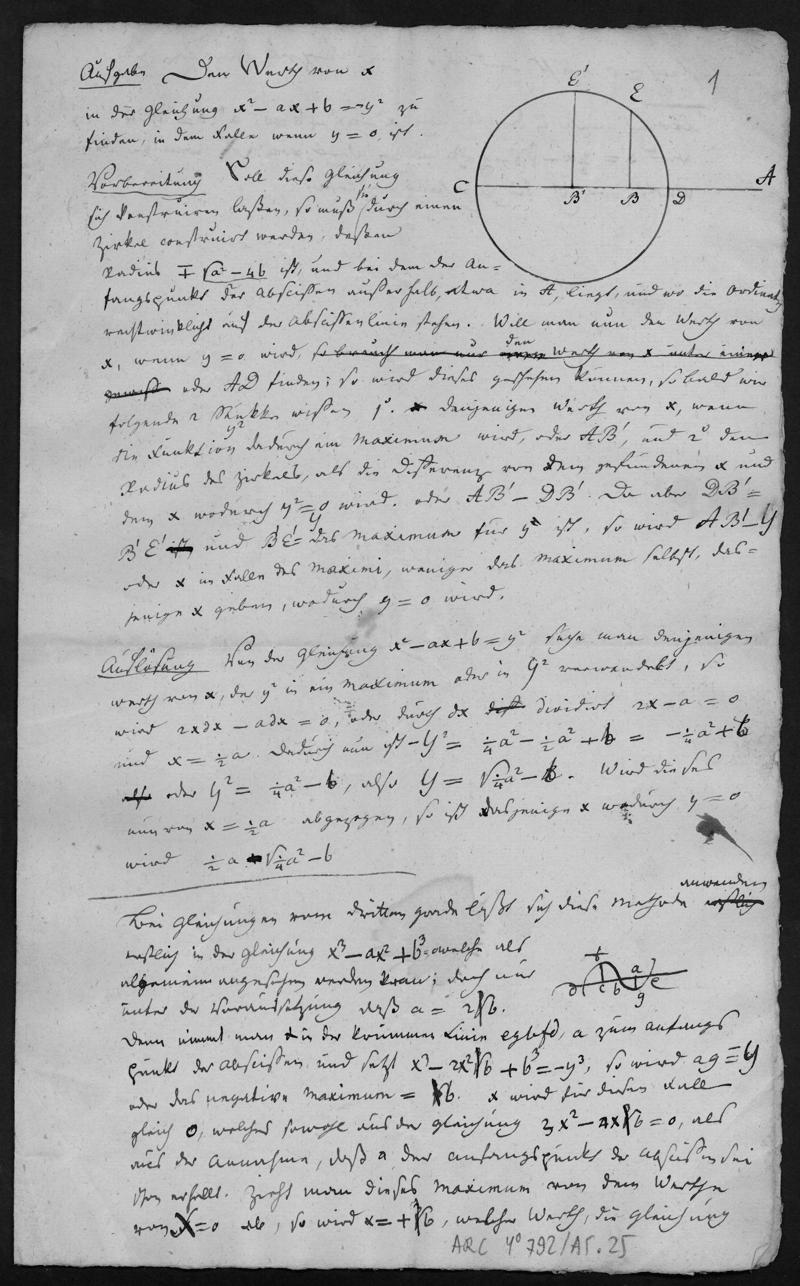 1
Aufgabe. Den Werth von x
in der Gleichung x² – ax + b = –y² zu
finden, in dem Falle wenn y = 0 ist.
E'
E
C
B'
B
D
A
Vorbereitung Soll diese Gleichung
sich construiren laßen, so muß sie durch einen
Zirkel construirt werden, deßen
Radius ∓ √a² – 4b ist, und bei dem der An=
fangspunkt der Abscissen außerhalb, etwa in A, liegt, und wo die Ordinaten
rechtwinklicht auf der Abscissenlinie stehen. Will man nun den Werth von
x, wenn y = 0 wird, so braucht man nur den Werth von x unter einer
oder AD finden; so wird dieses geschehen können, so bald wir
folgende 2 Stükke wissen 1°. denjenigen Werth von x, wenn
die Funktion y² dadurch ein Maximum wird, oder AB', und 2° den
Radius des Zirkels, als die Differenz von dem gefundenen x und
dem x wodurch y² = 0 wird. oder AB' – DB'. Da aber DB' =
B'E' ist und B'E' = y das Maximum für y ist, so wird AB' – y
oder x im Falle des Maximi, weniger das Maximum selbst, das=
jenige x geben, wodurch y = 0 wird.
Auflösung Von der Gleichung x² – ax + b = y² suche man denjenigen
werth von x, der y² in ein Maximum oder in Y² verwandelt, so
wird 2xdx – adx = 0, oder durch dx dividirt 2x – a = 0
und x = ½a. Dadurch nun ist –Y² = ¼a² – ½a² + b = –¼a² + b
also oder Y² = ¼a² – b, also Y = √¼a² – b. Wird dieses
nun von x = ½a abgezogen, so ist dasjenige x wodurch y = 0
wird ½a √¼a² – b
Bei Gleichungen vom dritten grade läßt sich diese Methode anwenden
erstlich in der Gleichung x³ – ax² + b³ welche als
allgemein angesehen werden kann; doch nur
unter der Voraussetzung daß a = 2b.
f
a
d
c
b
e
g
Denn nimmt man in der krummen Linie egbfd, a zum Anfangs
punkt der Abscissen und setzt x³ – 2x²b + b³ = –y³, so wird ag = y
oder das negative Maximum = b. x wird für diesen Fall
gleich 0, welches sowohl aus der Gleichung 3x² – 4xb = 0, als
aus der Annahme, daß a der Anfangspunkt der Abscissen sei
schon erhellt. Zieht man dieses Maximum von dem Werthe
von X = 0 ab, so wird x = +b, welcher Werth, die Gleichung
ARC 4° 792/A5.25